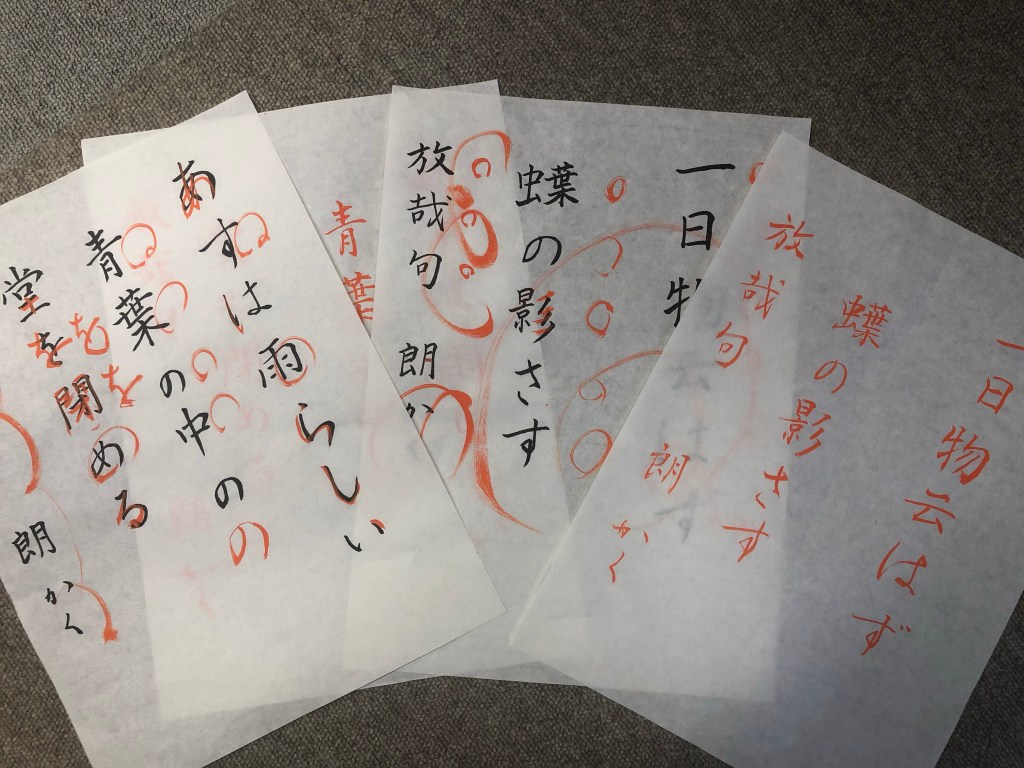 一日物云はず
蝶の影さす
放哉句
朗かく
一日物
蝶の影さす
放哉句
朗か
青葉
あすは雨らしい
青葉の中の
堂を閉める
朗かく